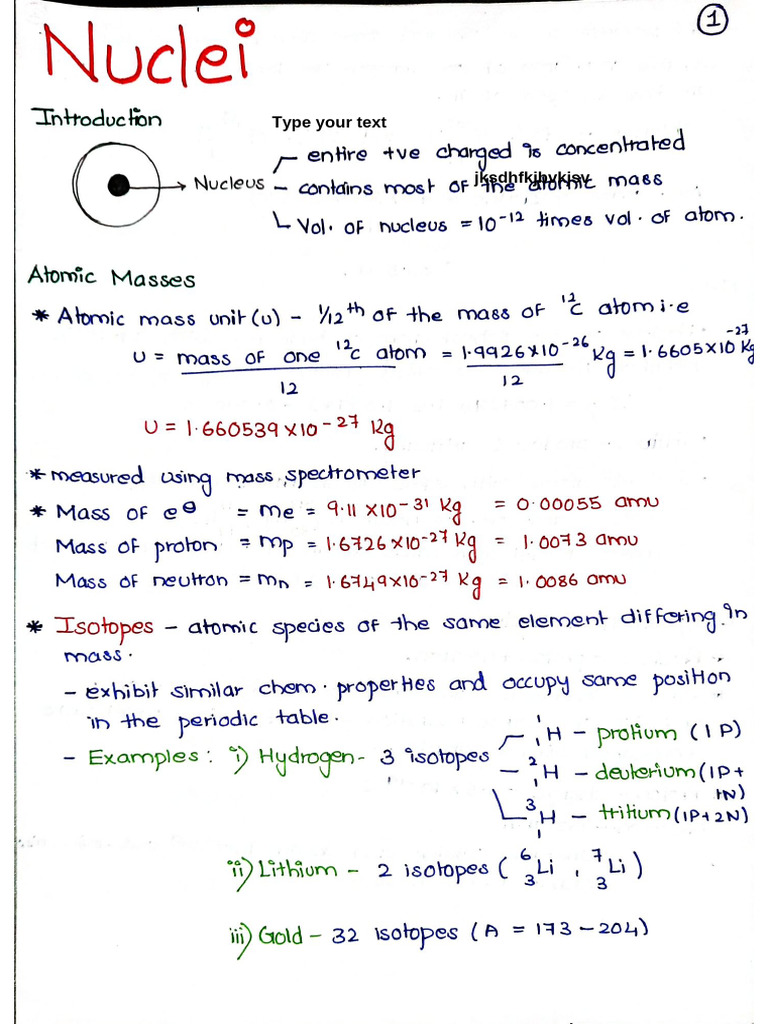 1
Nuclei
Introduction
Type your text
entire +ve charged is concentrated
Nucleus - contains most of the atomic mass
jksdhfkjhykjsy
Vol. of nucleus = 10⁻¹² times vol. of atom.
Atomic Masses
* Atomic mass unit (u) - 1/12th of the mass of ¹²C atom i.e
U = mass of one ¹²C atom / 12 = 1.9926×10⁻²⁶ / 12 Kg = 1.6605×10⁻²⁷ Kg
U = 1.660539×10⁻²⁷ Kg
* measured using mass spectrometer
* Mass of e⊖ = me = 9.11×10⁻³¹ Kg = 0.00055 amu
Mass of proton = mp = 1.6726×10⁻²⁷ Kg = 1.0073 amu
Mass of neutron = mn = 1.6749×10⁻²⁷ Kg = 1.0086 amu
* Isotopes - atomic species of the same element differing in
mass.
- exhibit similar chem. properties and occupy same position
in the periodic table.
- Examples: i) Hydrogen - 3 isotopes
¹₁H - protium (1P)
²₁H - deuterium (1P+
1N)
³₁H - tritium (1P+2N)
ii) Lithium - 2 isotopes (⁶₃Li, ⁷₃Li)
iii) Gold - 32 isotopes (A = 173 - 204)